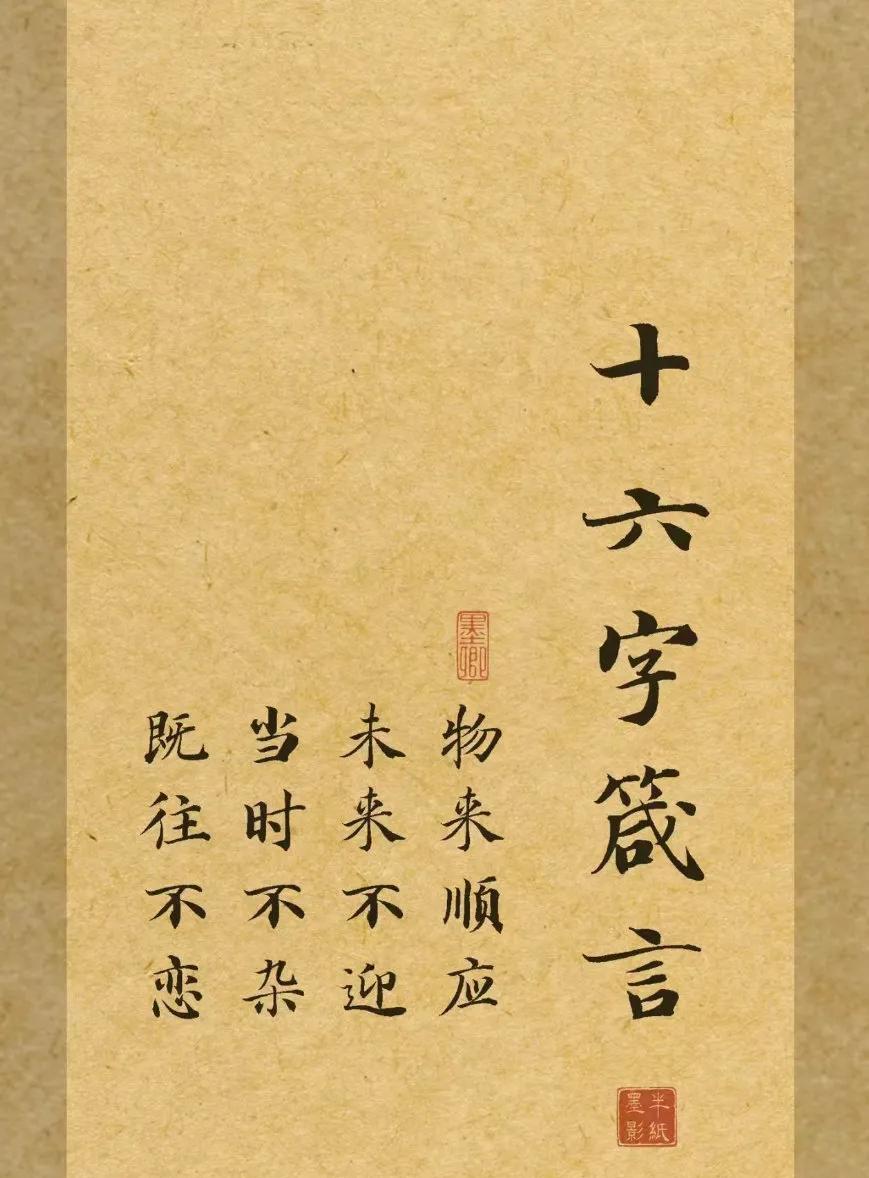 十六字箴言
墨卿
物来顺应
未来不迎
当时不杂
既往不恋
半紙墨影